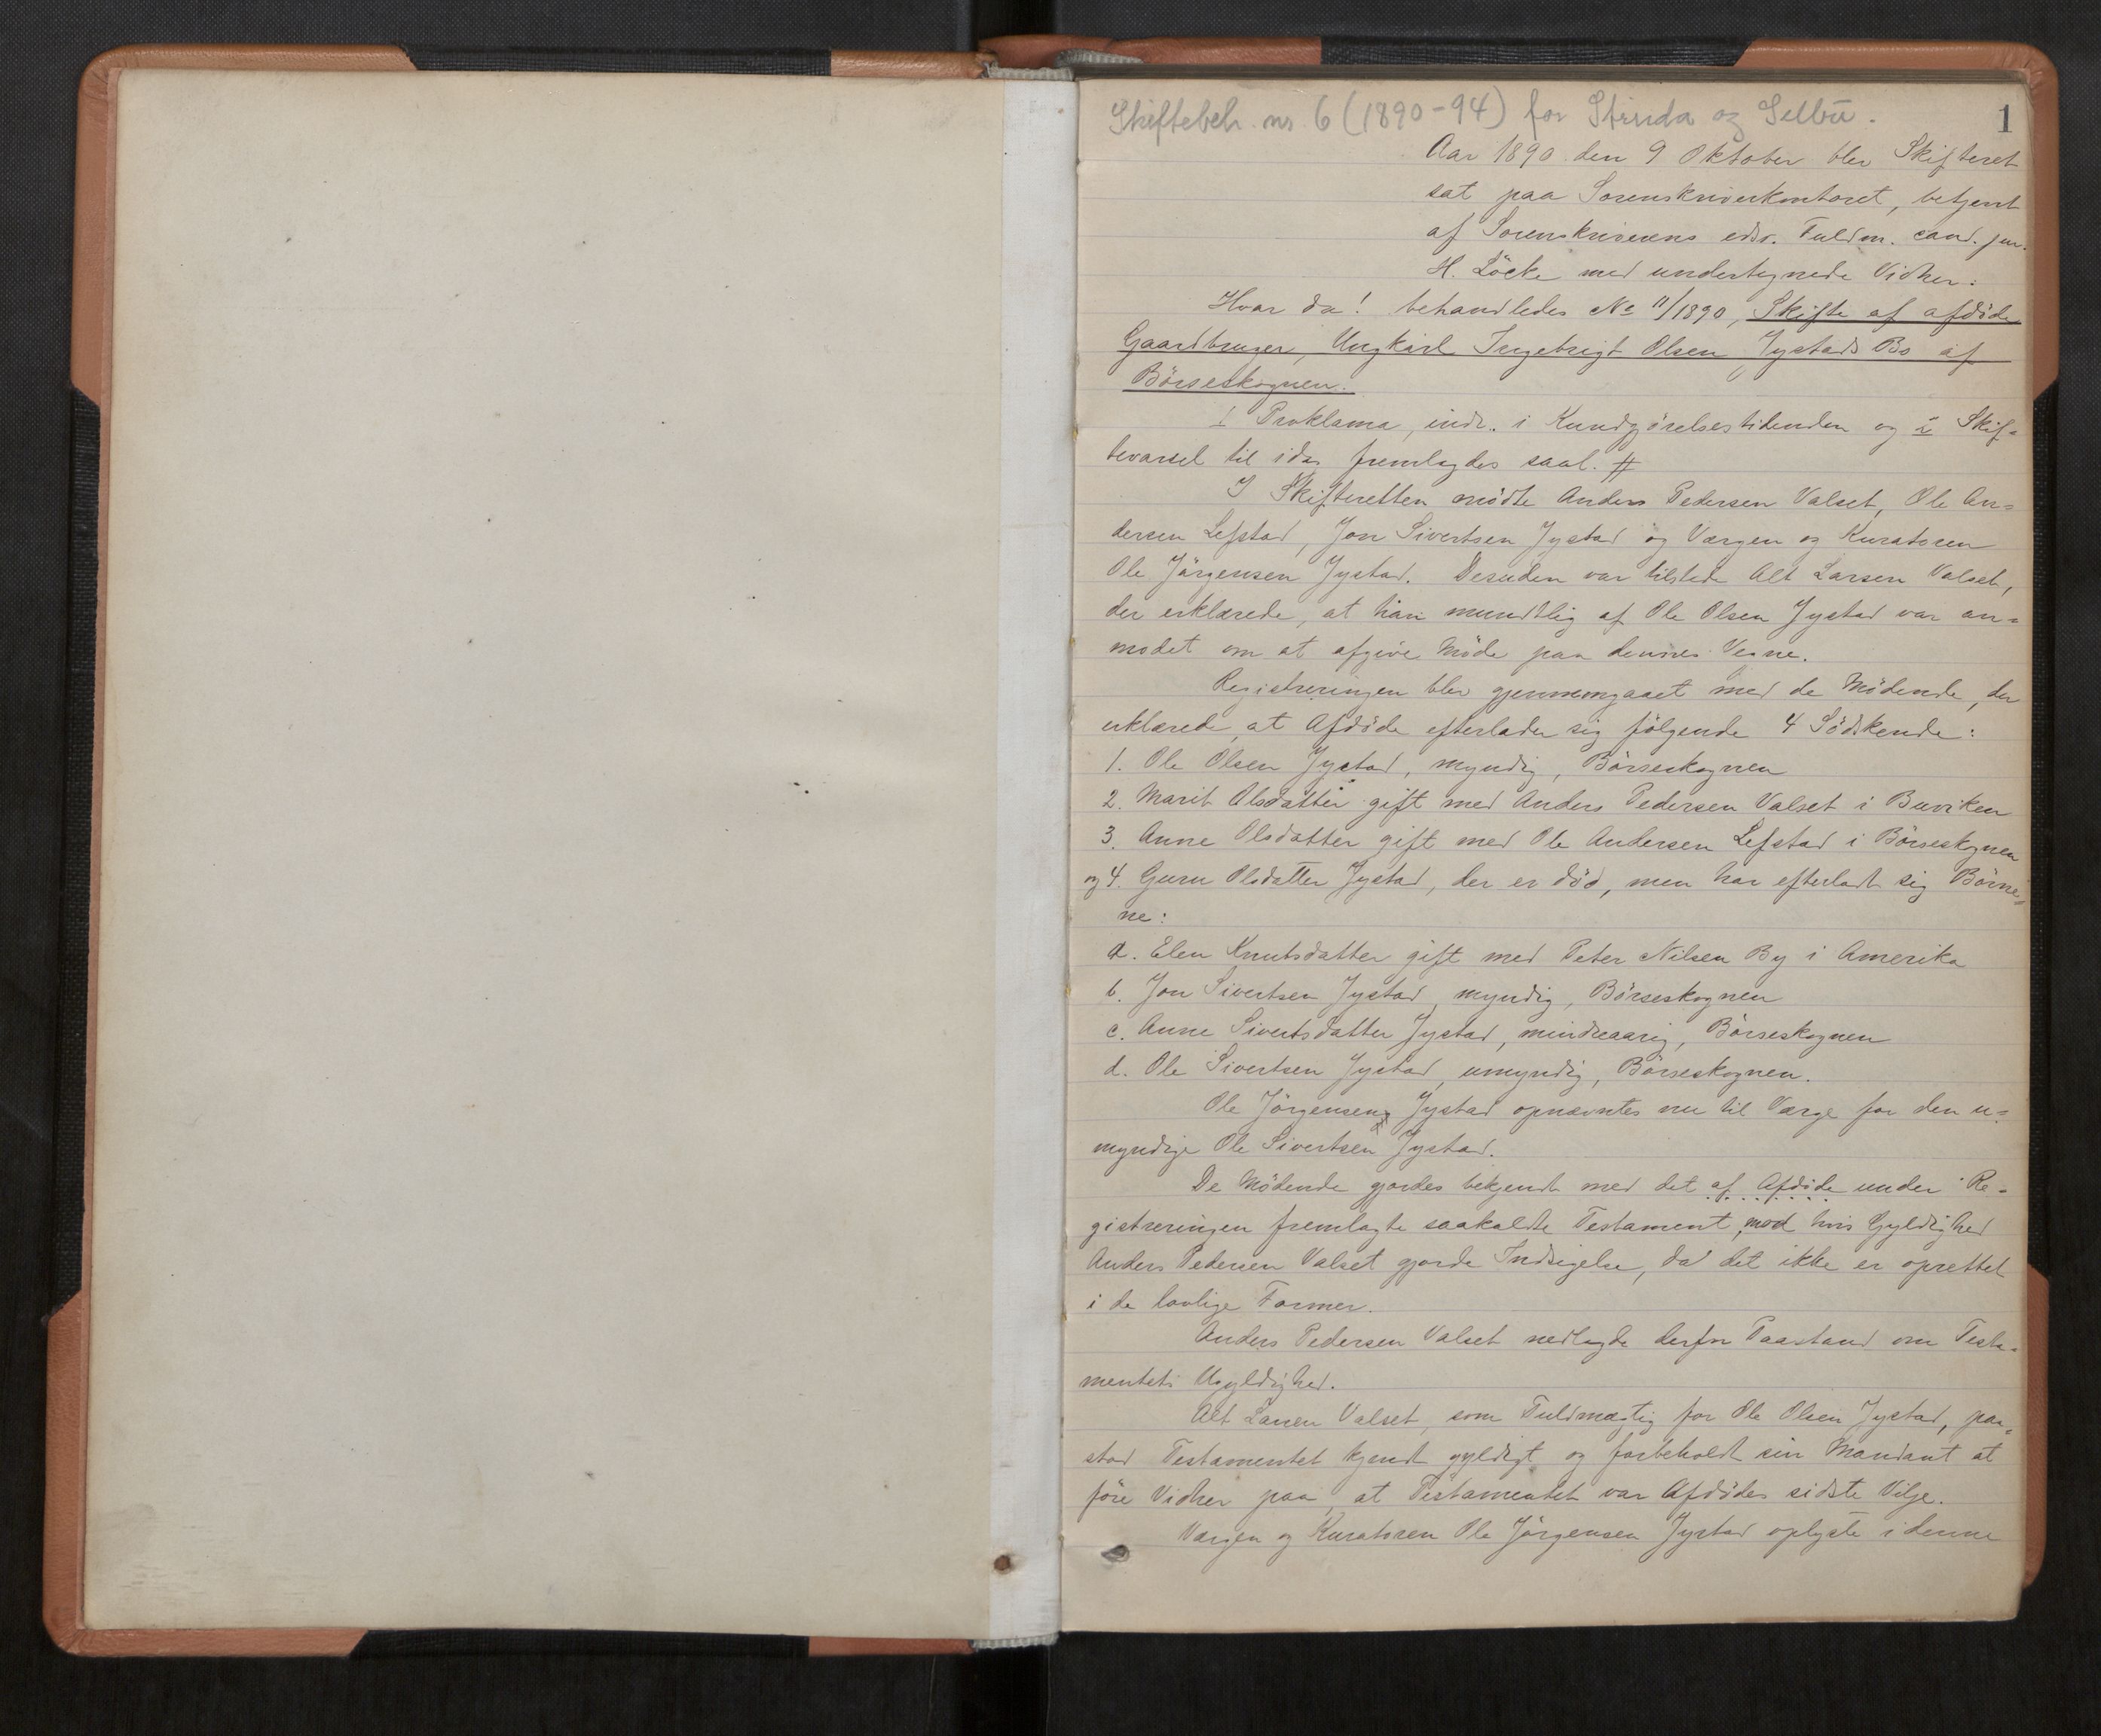 Skiftebeh. nr 6 (1890-94) for Strinda og Selbu.
1
Aar 1890 den 9 Oktober blev Skifteret
sat paa Sorenskriverkontoret, betjent
af Sorenskriverens edsv. Fuldm. cand. jur.
H. Löcke med undertegnede Vidner:
Hvor da! behandledes No 11/1890, Skifte af afdöde
Gaardbruger, Ungkarl Ingebrigt Olsen Jystads Bo af
Börseskognen.
1 Proklama, indr. i Kundgjörelsestidenden og 2 Skif-
tevarsel til idag fremlagdes saal. #
I Skifteretten mödte Anders Pedersen Valset, Ole An=
dersen Lefstad, Jon Sivertsen Jystad og Værgen og Kuratoren
Ole Jörgensen Jystad. Desuden var tilstede Alt Larsen Valset,
der erklærede, at han mundtlig af Ole Olsen Jystad var an=
modet om at afgive Möde paa dennes Vegne.
Registreringen blev gjennemgaaet med de Mödende, der
erklærede, at Afdöde efterlader sig fölgende 4 Södskende:
1. Ole Olsen Jystad, myndig, Börseskognen
2. Marit Olsdatter gift med Anders Pedersen Valset i Buviken
3. Anne Olsdatter gift med Ole Andersen Lefstad i Börseskognen
og 4. Guru Olsdatter Jystad, der er död, men har efterladt sig Börne=
ne:
a. Elen Knutsdatter gift med Peter Nilsen By i Amerika
b. Jon Sivertsen Jystad, myndig, Börseskognen
c. Anne Sivertsdatter Jystad, mindreaarig, Börseskognen
d. Ole Sivertsen Jystad, umyndig, Börseskognen.
Ole Jörgensen Jystad opnævntes nu til Værge for den u=
myndige Ole Sivertsen Jystad.
De Mödende gjordes bekjendt med det af Afdöde under Re=
gistreringen fremlagte saakaldte Testament, mod hvis Gyldighed
Anders Pedersen Valset gjorde Indsigelse, da det ikke er oprettet
i de lovlige Former.
Anders Pedersen Valset nedlagde derfor Paastand om Testa=
mentets Ugyldighed.
Alt Larsen Valset, som Fuldmægtig for Ole Olsen Jystad, paa=
stod Testamentet kjendt gyldigt og forbeholdt sin Mandant at
före Vidner paa, at Testamentet var Afdödes sidste Vilje.
Værgen og Kuratoren Ole Jörgensen Jystad oplyste i denne